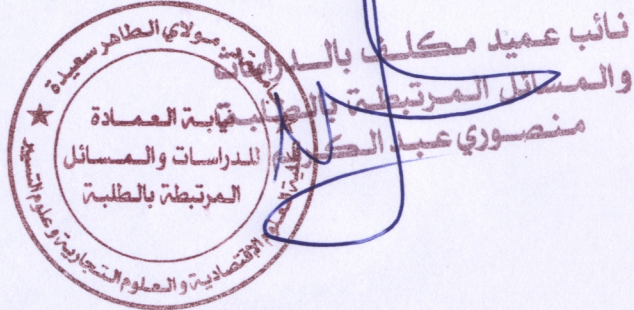 نائب عميد مكلف بالدراسات
والمسائل المرتبطة بالطلبة
منصوري عبد الكريم
مولاي الطاهر سعيدة
نيابة العمادة
للدراسات والمسائل
المرتبطة بالطلبة
كلية العلوم الاقتصادية والعلوم التجارية وعلوم التسيير